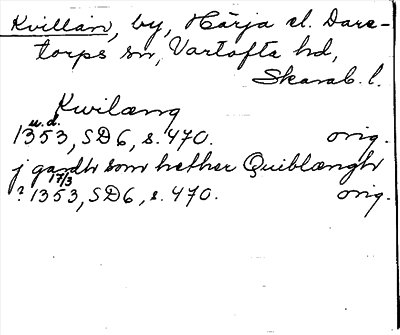 Kvillän, by, Härja el. Dare-
torps sn, Vartofta hd,
Skarab. l.
Kwilæng
u.d.
1353, SD6, s. 470. orig.
j gardh som hether Quiblængh
17/3
? 1353, SD6, s. 470. orig.